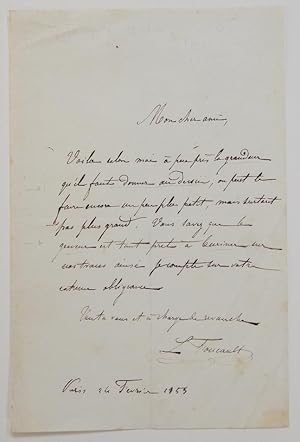 Mon cher ami,
Voila selon moi à peu près la grandeur
qu'il faut donner au dessin, on peut le
faire encore un peu plus petit mais surtout
pas plus grand. Vous savez que le
graveur est tout prêt à buriner sur
nos traces ainsi je compte sur votre
extreme obligeance
Tout à vous et à charge de revanche
L Foucault
Paris 24 Fevrier 1853